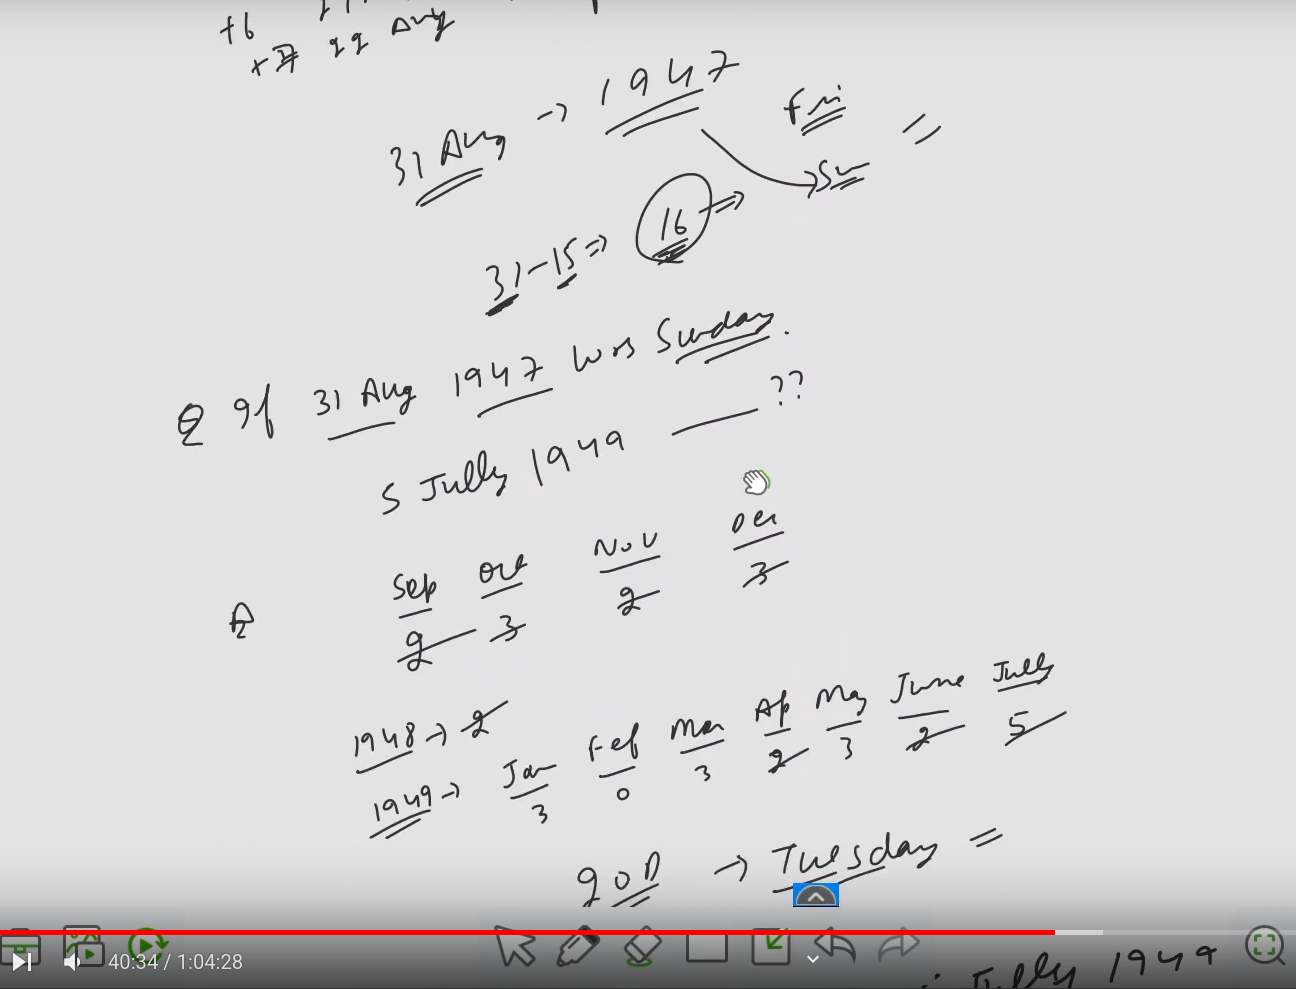 +6
+7 99 Aug
31 Aug → 1947
Fri
Su =
31-15 ⇒ 16 ⇒
Q If 31 Aug 1947 was Sunday.
5 Jully 1949 ——— ??
Sep Oct Nov Dec
2 3 2 3
1948 → 2
1949 → Jan Feb Mar Ap May June Jully
3 0 3 2 3 2 5
2 OD → Tuesday =
Jully 1949
40:34 / 1:04:28